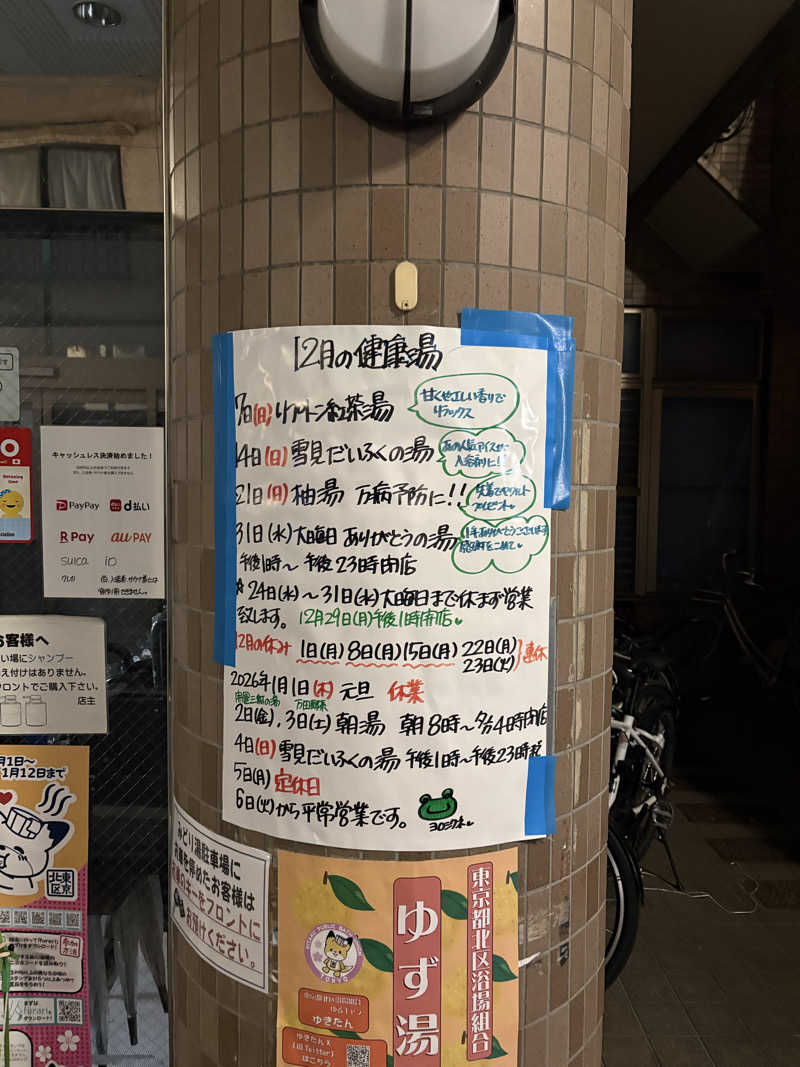 12月の健康湯
7日(日)リプトン紅茶湯
甘く正しい香りで
リラックス
14日(日)雪見だいふくの湯
あの人気アイスが
入浴剤に!!
21日(日)柚湯 万病予防に!!
プレゼント
31日(水)大晦日ありがとうの湯
1年ありがとうございます
午後1時〜午後23時閉店
★24日(水)〜31日(水)大晦日まで休まず営業
致します。12月29日(月)午後1時開店
12月の休み 1日(月) 8日(月) 15日(月) 22日(月)
23日(火) 連休
2026年1月1日(木) 元旦 休業
2日(金)、3日(土)朝湯 朝8時〜夕方4時閉店
4日(日)雪見だいふくの湯 午後1時〜午後23時迄
5日(月)定休日
6日(火)から平常営業です。
ヨロシクネ
キャッシュレス決済始めました!
PayPay d払い
R Pay au PAY
suica iD
お客様へ
い場にシャンプー
え付けはありません。
フロントでご購入下さい。
店主
月1日〜
1月12日まで
北区
東京
みどり湯駐車場に
お車を停めたお客様は
お車のキーをフロントに
お預けください。
ゆず湯
東京都北区浴場組合
TOKYO
ゆきたん
ゆきたんX
(旧Twitter)
はこちら